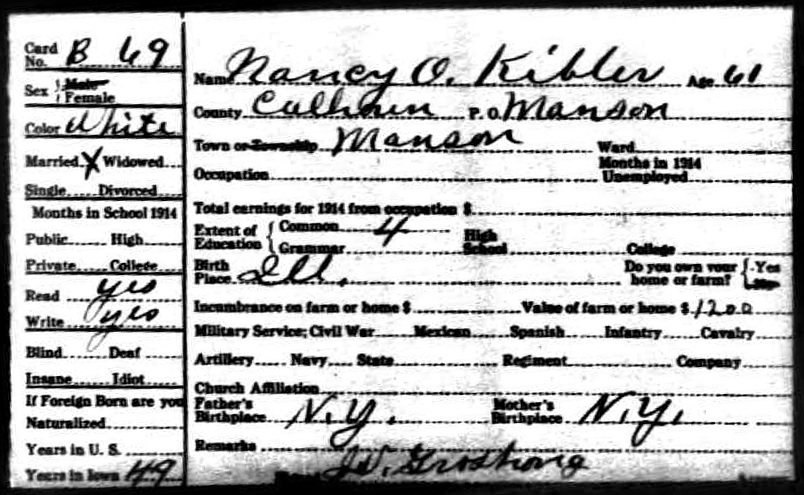 Card No. B 69
Sex Male Female
Color White
Married X Widowed
Single Divorced
Months in School 1914
Public High
Private College
Read yes
Write yes
Blind Deaf
Insane Idiot
If Foreign Born are you
Naturalized
Years in U. S.
Years in Iowa 49
Name Nancy O. Kibler Age 61
County Calhoun P. O. Manson
Town or Township Manson Ward
Occupation Months in 1914 Unemployed
Total earnings for 1914 from occupation $
Extent of Education Common 4 Grammar High School College
Birth Place Ill. Do you own your home or farm? Yes No
Incumbrance on farm or home $ Value of farm or home $ 1200
Military Service; Civil War Mexican Spanish Infantry Cavalry
Artillery Navy State Regiment Company
Church Affiliation
Father's Birthplace N.Y. Mother's Birthplace N.Y.
Remarks
J.V. Groshong